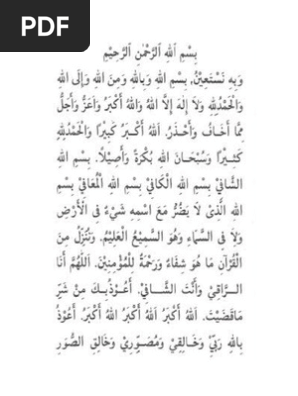 PDF
بِسْمِ اللهِ الرَّحْمٰنِ الرَّحِيْمِ
وَبِهِ نَسْتَعِيْنُ. بِسْمِ اللهِ وَبِاللهِ وَمِنَ اللهِ وَإِلَى اللهِ
وَالْحَمْدُلِلّٰهِ وَلَا إِلٰهَ إِلَّا اللهُ وَاللهُ أَكْبَرُ وَأَعَزُّ وَأَجَلُّ
مِمَّا أَخَافُ وَأَحْذَرُ. اَللهُ أَكْبَرُ كَبِيْرًا وَالْحَمْدُلِلّٰهِ
كَثِيْرًا وَسُبْحَانَ اللهِ بُكْرَةً وَأَصِيْلًا. بِسْمِ اللهِ
الشَّافِيْ بِسْمِ اللهِ الْكَافِيْ بِسْمِ اللهِ الْمُعَافِيْ بِسْمِ
اللهِ الَّذِيْ لَا يَضُرُّ مَعَ اسْمِهِ شَيْءٌ فِى الْأَرْضِ
وَلَا فِى السَّمَاءِ وَهُوَ السَّمِيْعُ الْعَلِيْمُ. وَنُنَزِّلُ مِنَ
الْقُرْآنِ مَا هُوَ شِفَاءٌ وَرَحْمَةٌ لِلْمُؤْمِنِيْنَ. اَللّٰهُمَّ أَنَا
الرَّاقِيْ وَأَنْتَ الشَّافِيْ. أَعُوْذُ بِكَ مِنْ شَرِّ
مَاقَضَيْتَ. اَللهُ أَكْبَرُ اَللهُ أَكْبَرُ اَللهُ أَكْبَرُ. أَعُوْذُ
بِاللهِ رَبِّيْ وَخَالِقِيْ وَمُصَوِّرِيْ وَخَالِقِ الصُّوَرِ